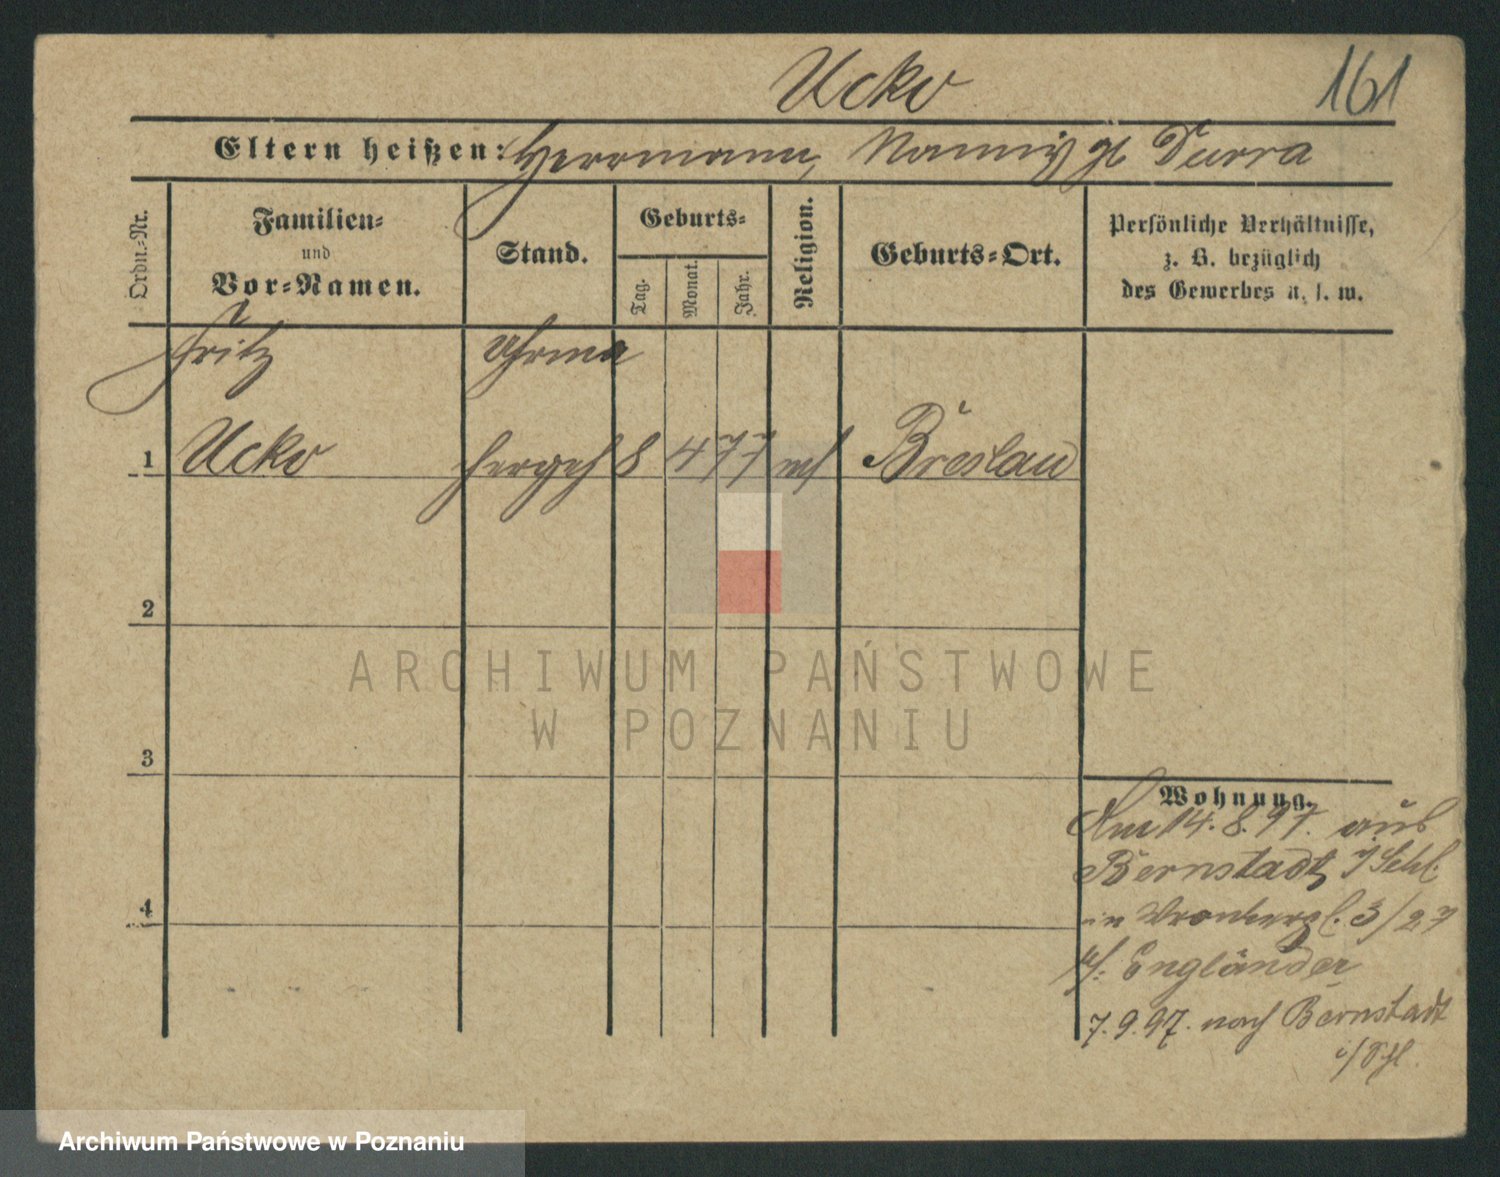 Ucko
161
Eltern heißen: Herrmann, Nanny gb Durra
Ordn.-Nr.
Familien-
und
Vor-Namen.
Stand.
Geburts-
Tag.
Monat.
Jahr.
Religion.
Geburts-Ort.
Persönliche Verhältnisse,
z. B. bezüglich
des Gewerbes u. s. w.
Fritz Uhrma
1 Ucko chergeh 8 4 77 Breslau
2
3
4
ARCHIWUM PAŃSTWOWE
W POZNANIU
Wohnung.
Am 14.8.97. aus
Bernstadt, i/Schl.
in 3/27
b/. Engländer
7.9.97. nach Bernstadt
i/Schl.
Archiwum Państwowe w Poznaniu